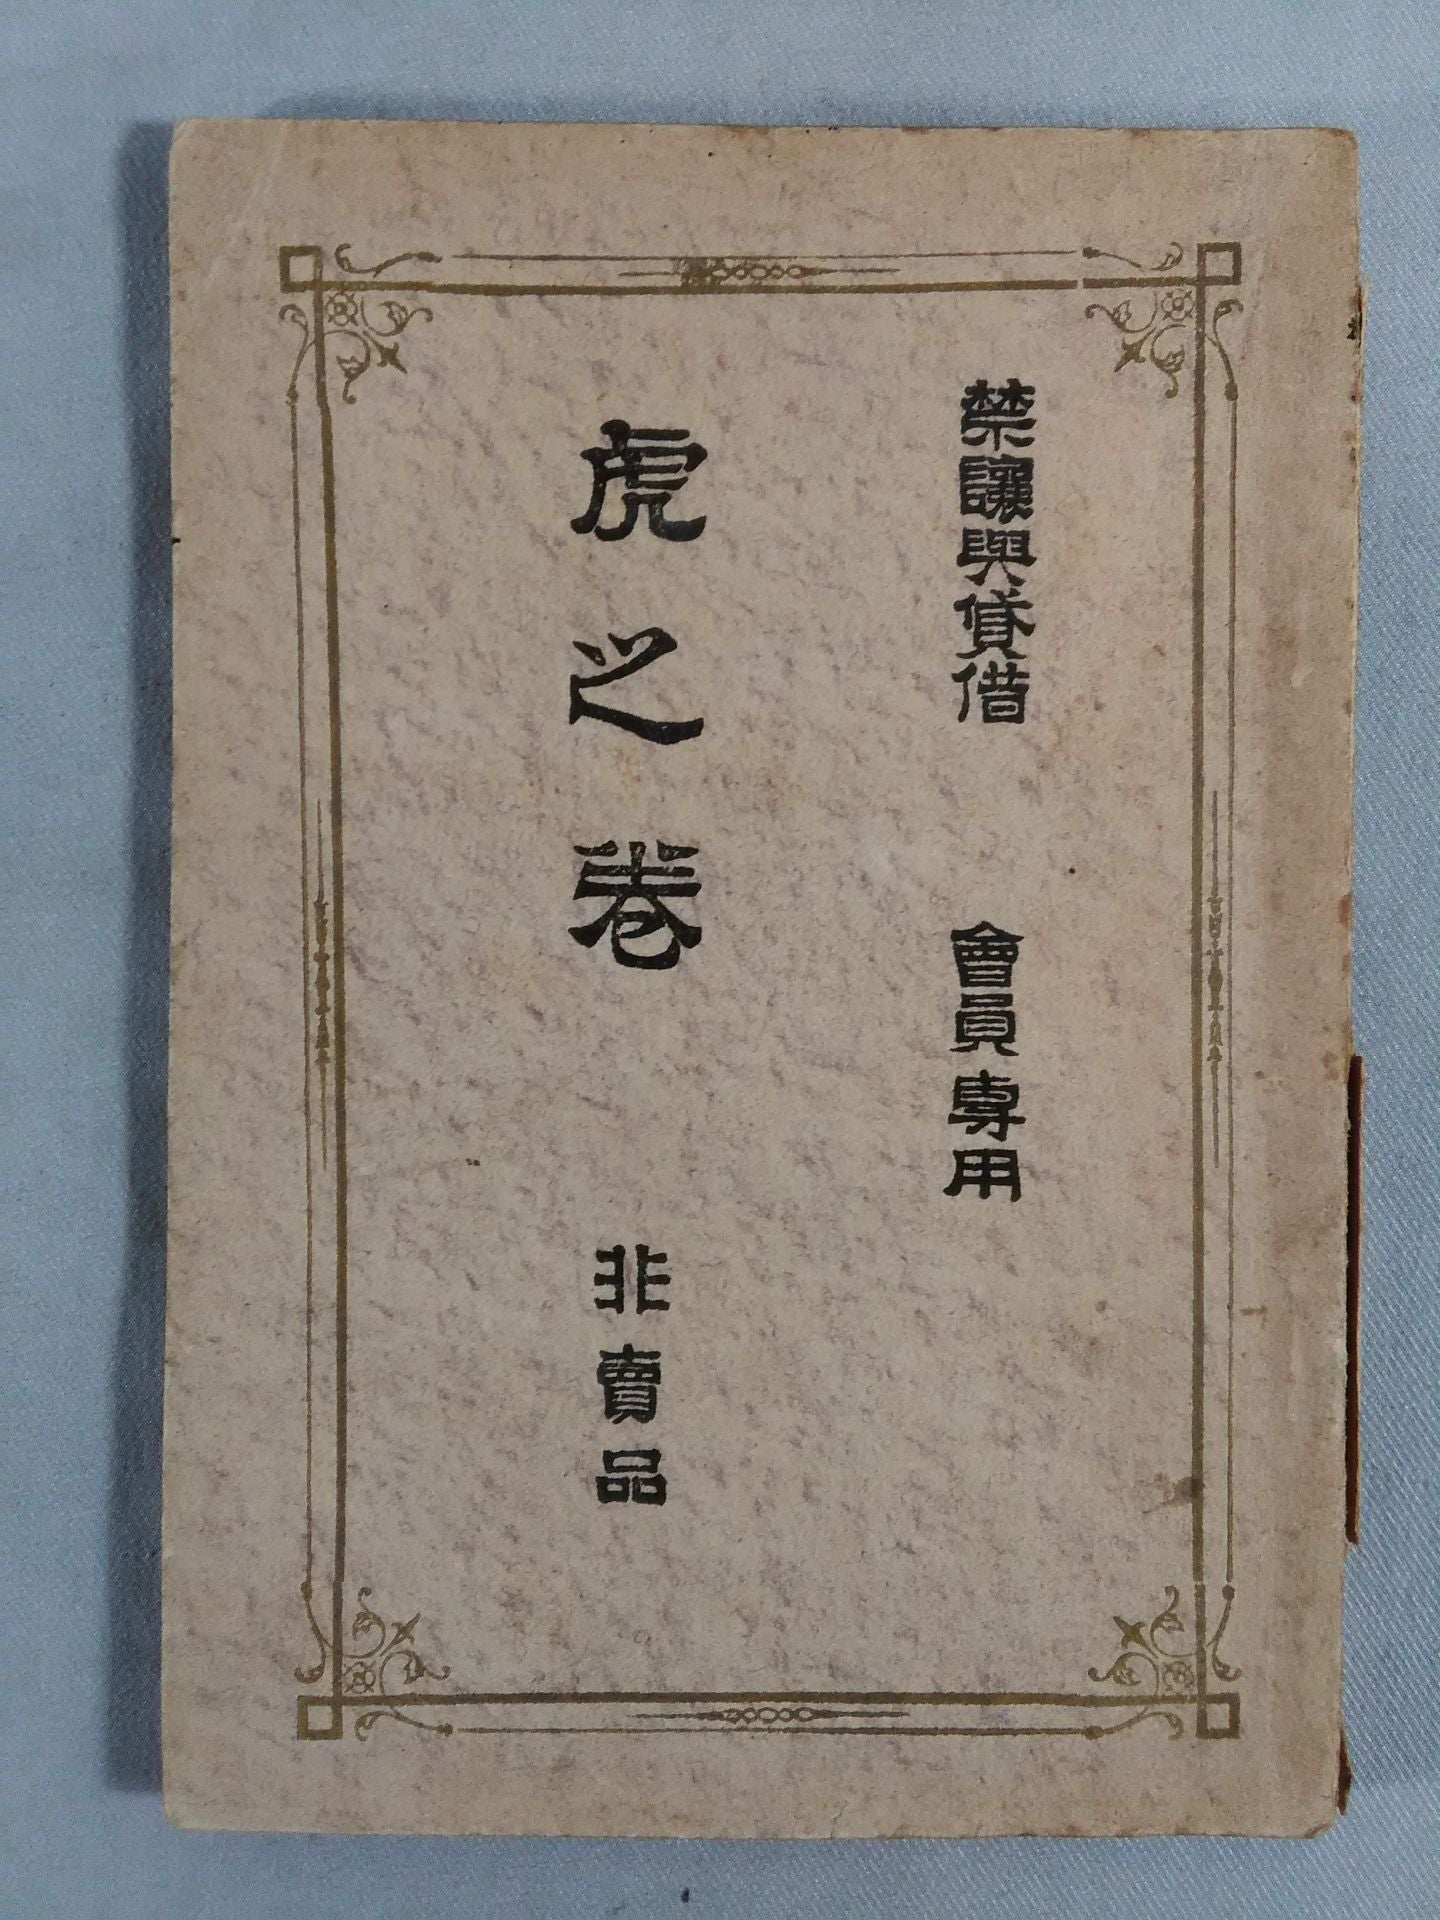 禁讓與貸借 會員專用
虎之卷 非賣品